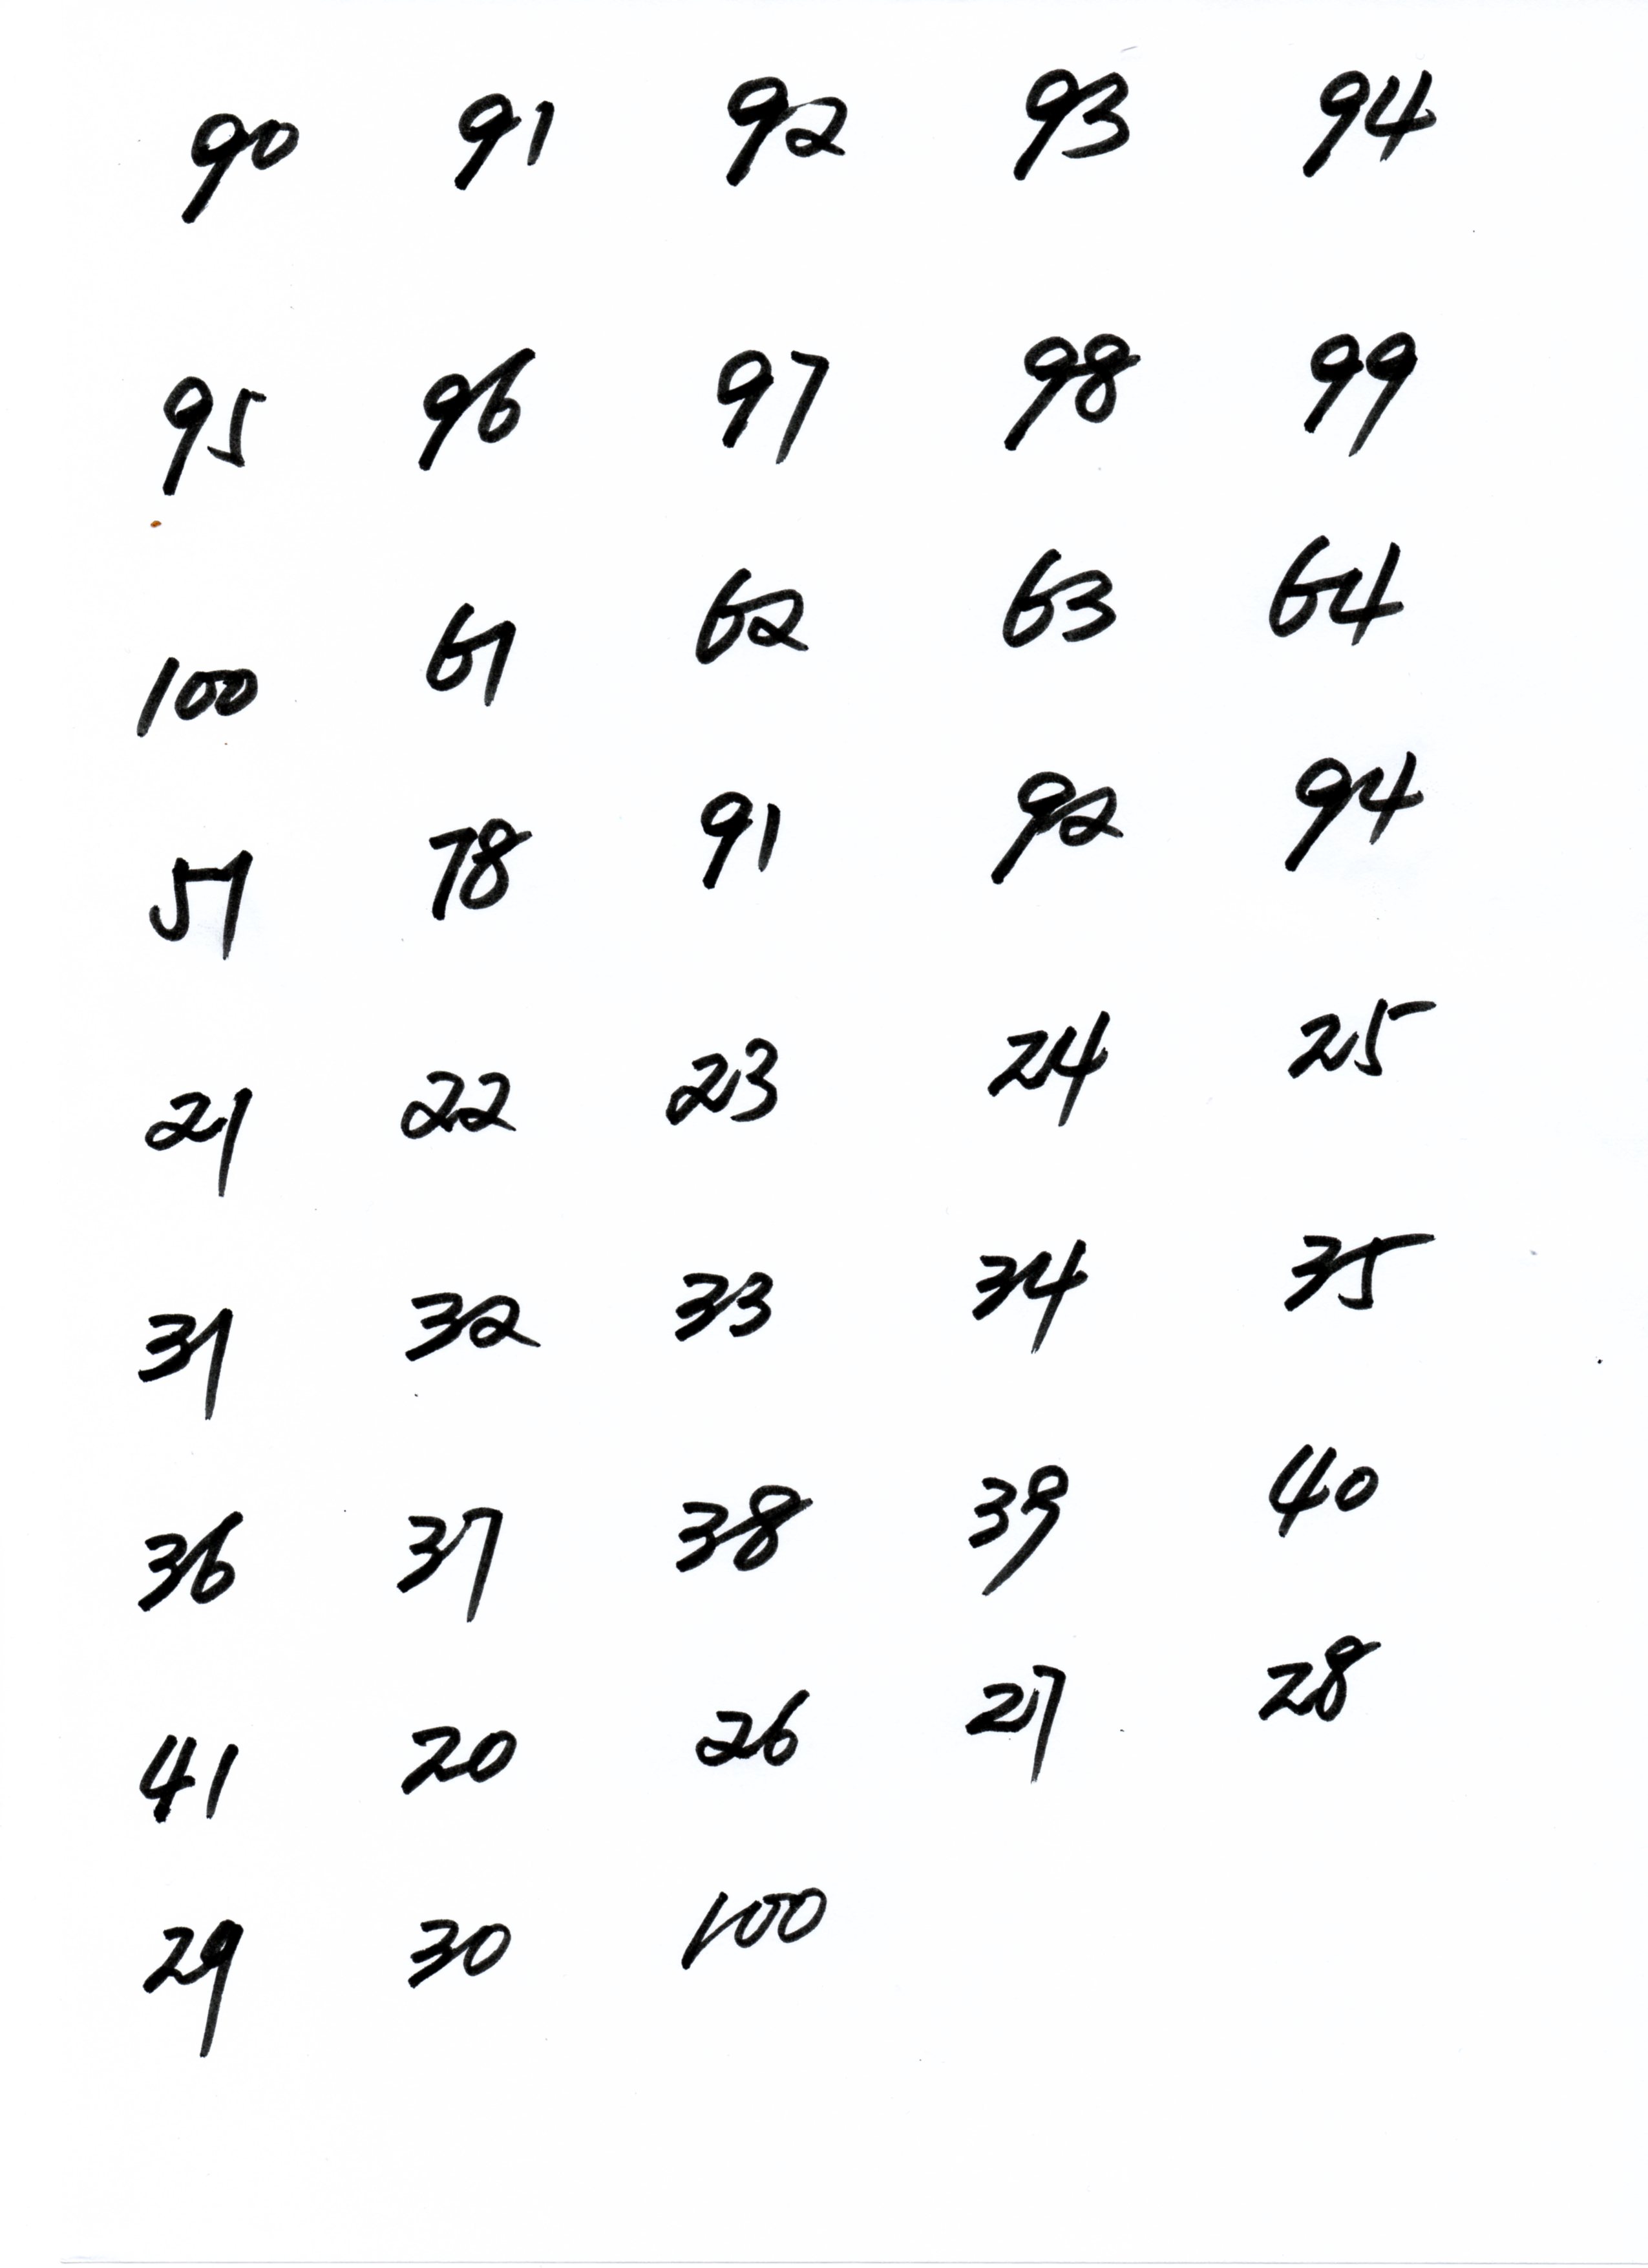 90 91 92 93 94
95 96 97 98 99
100 61 62 63 64
51 78 91 92 94
21 22 23 24 25
31 32 33 34 35
36 37 38 39 40
41 20 26 27 28
29 30 100